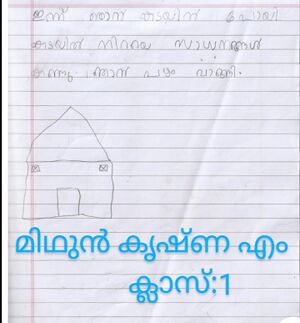 ഇന്ന് ഞാൻ കടയിൽ പോയി
കടയിൽ നിറയെ സാധനങ്ങൾ
കണ്ടു ഞാൻ പഴം വാങ്ങി.
മിഥുൻ കൃഷ്ണ എം
ക്ലാസ്:1